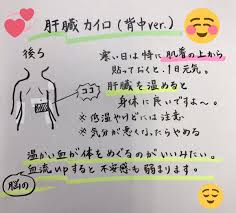 肝臓カイロ(背中ver.)
後ろ
ココ
寒い日は特に肌着の上から
貼っておくと、1日元気。
肝臓を温めると
身体に良いですよ〜。
※低温やけどには注意
※気分が悪くなったらやめる
温かい血が体をめぐるのがいいみたい。
血流upすると不安感も弱まります。
脳の